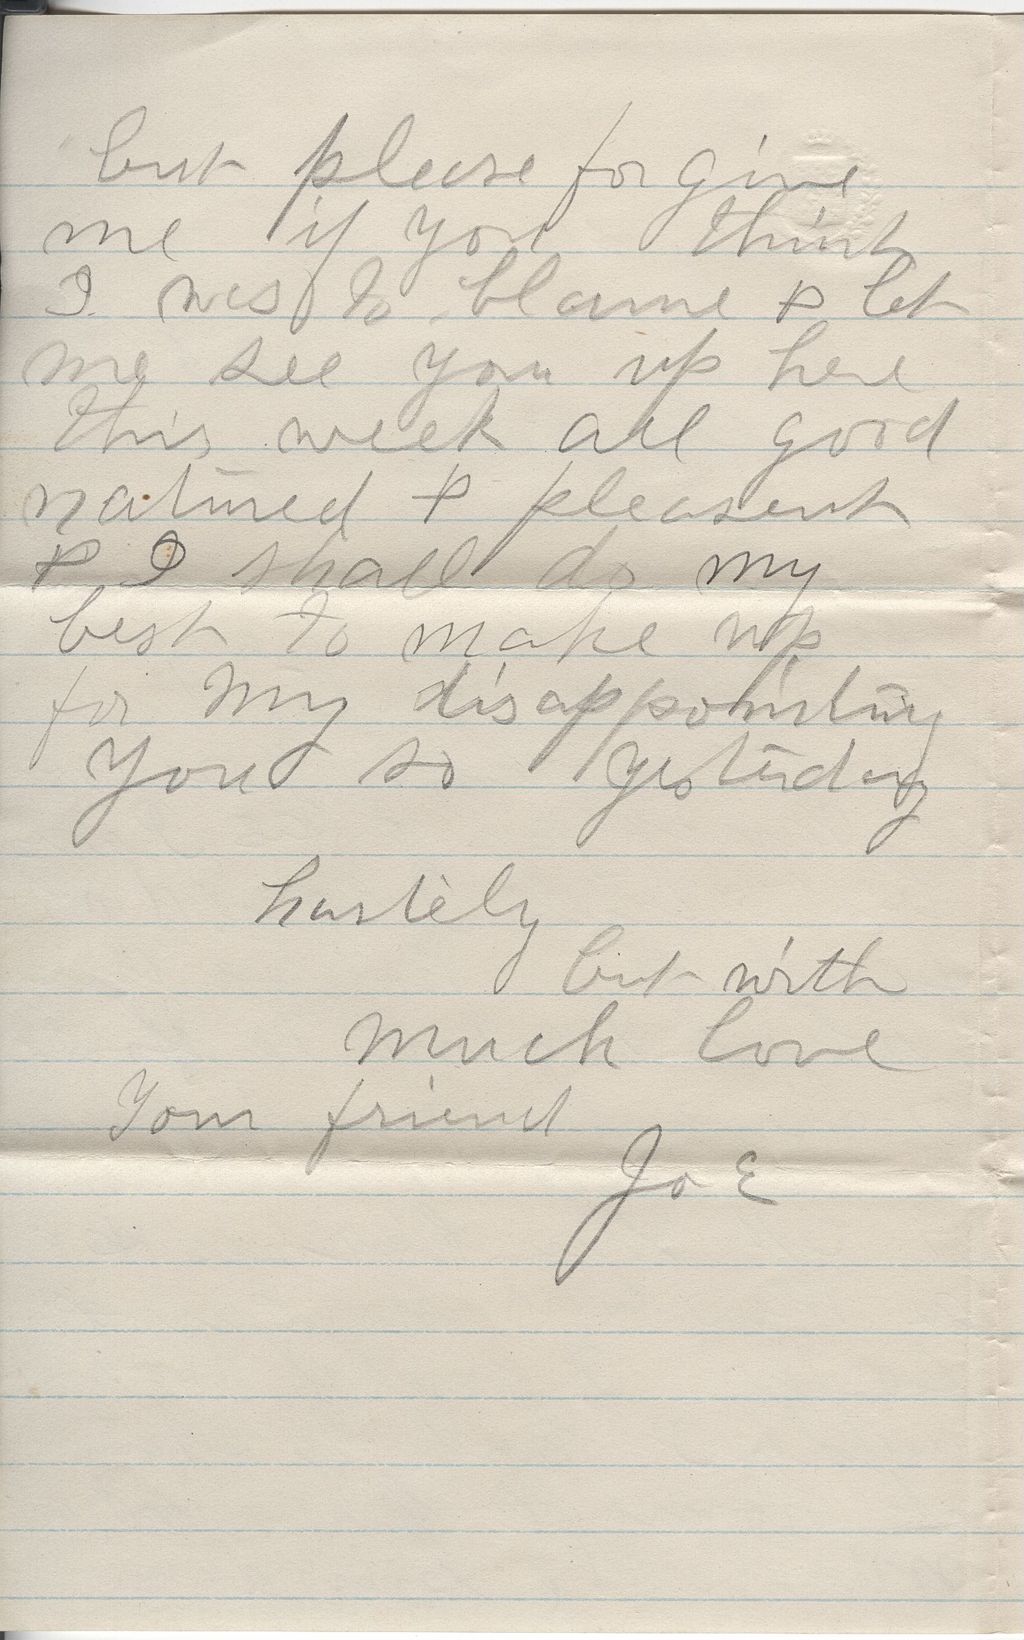 but please forgive
me if you think
I was to blame & let
me see you up here
this week all good
natured & pleasent
& I shall do my
best to make up
for my disappointing
you so yesterday
hastely
but with
much love
Your friend
Joe